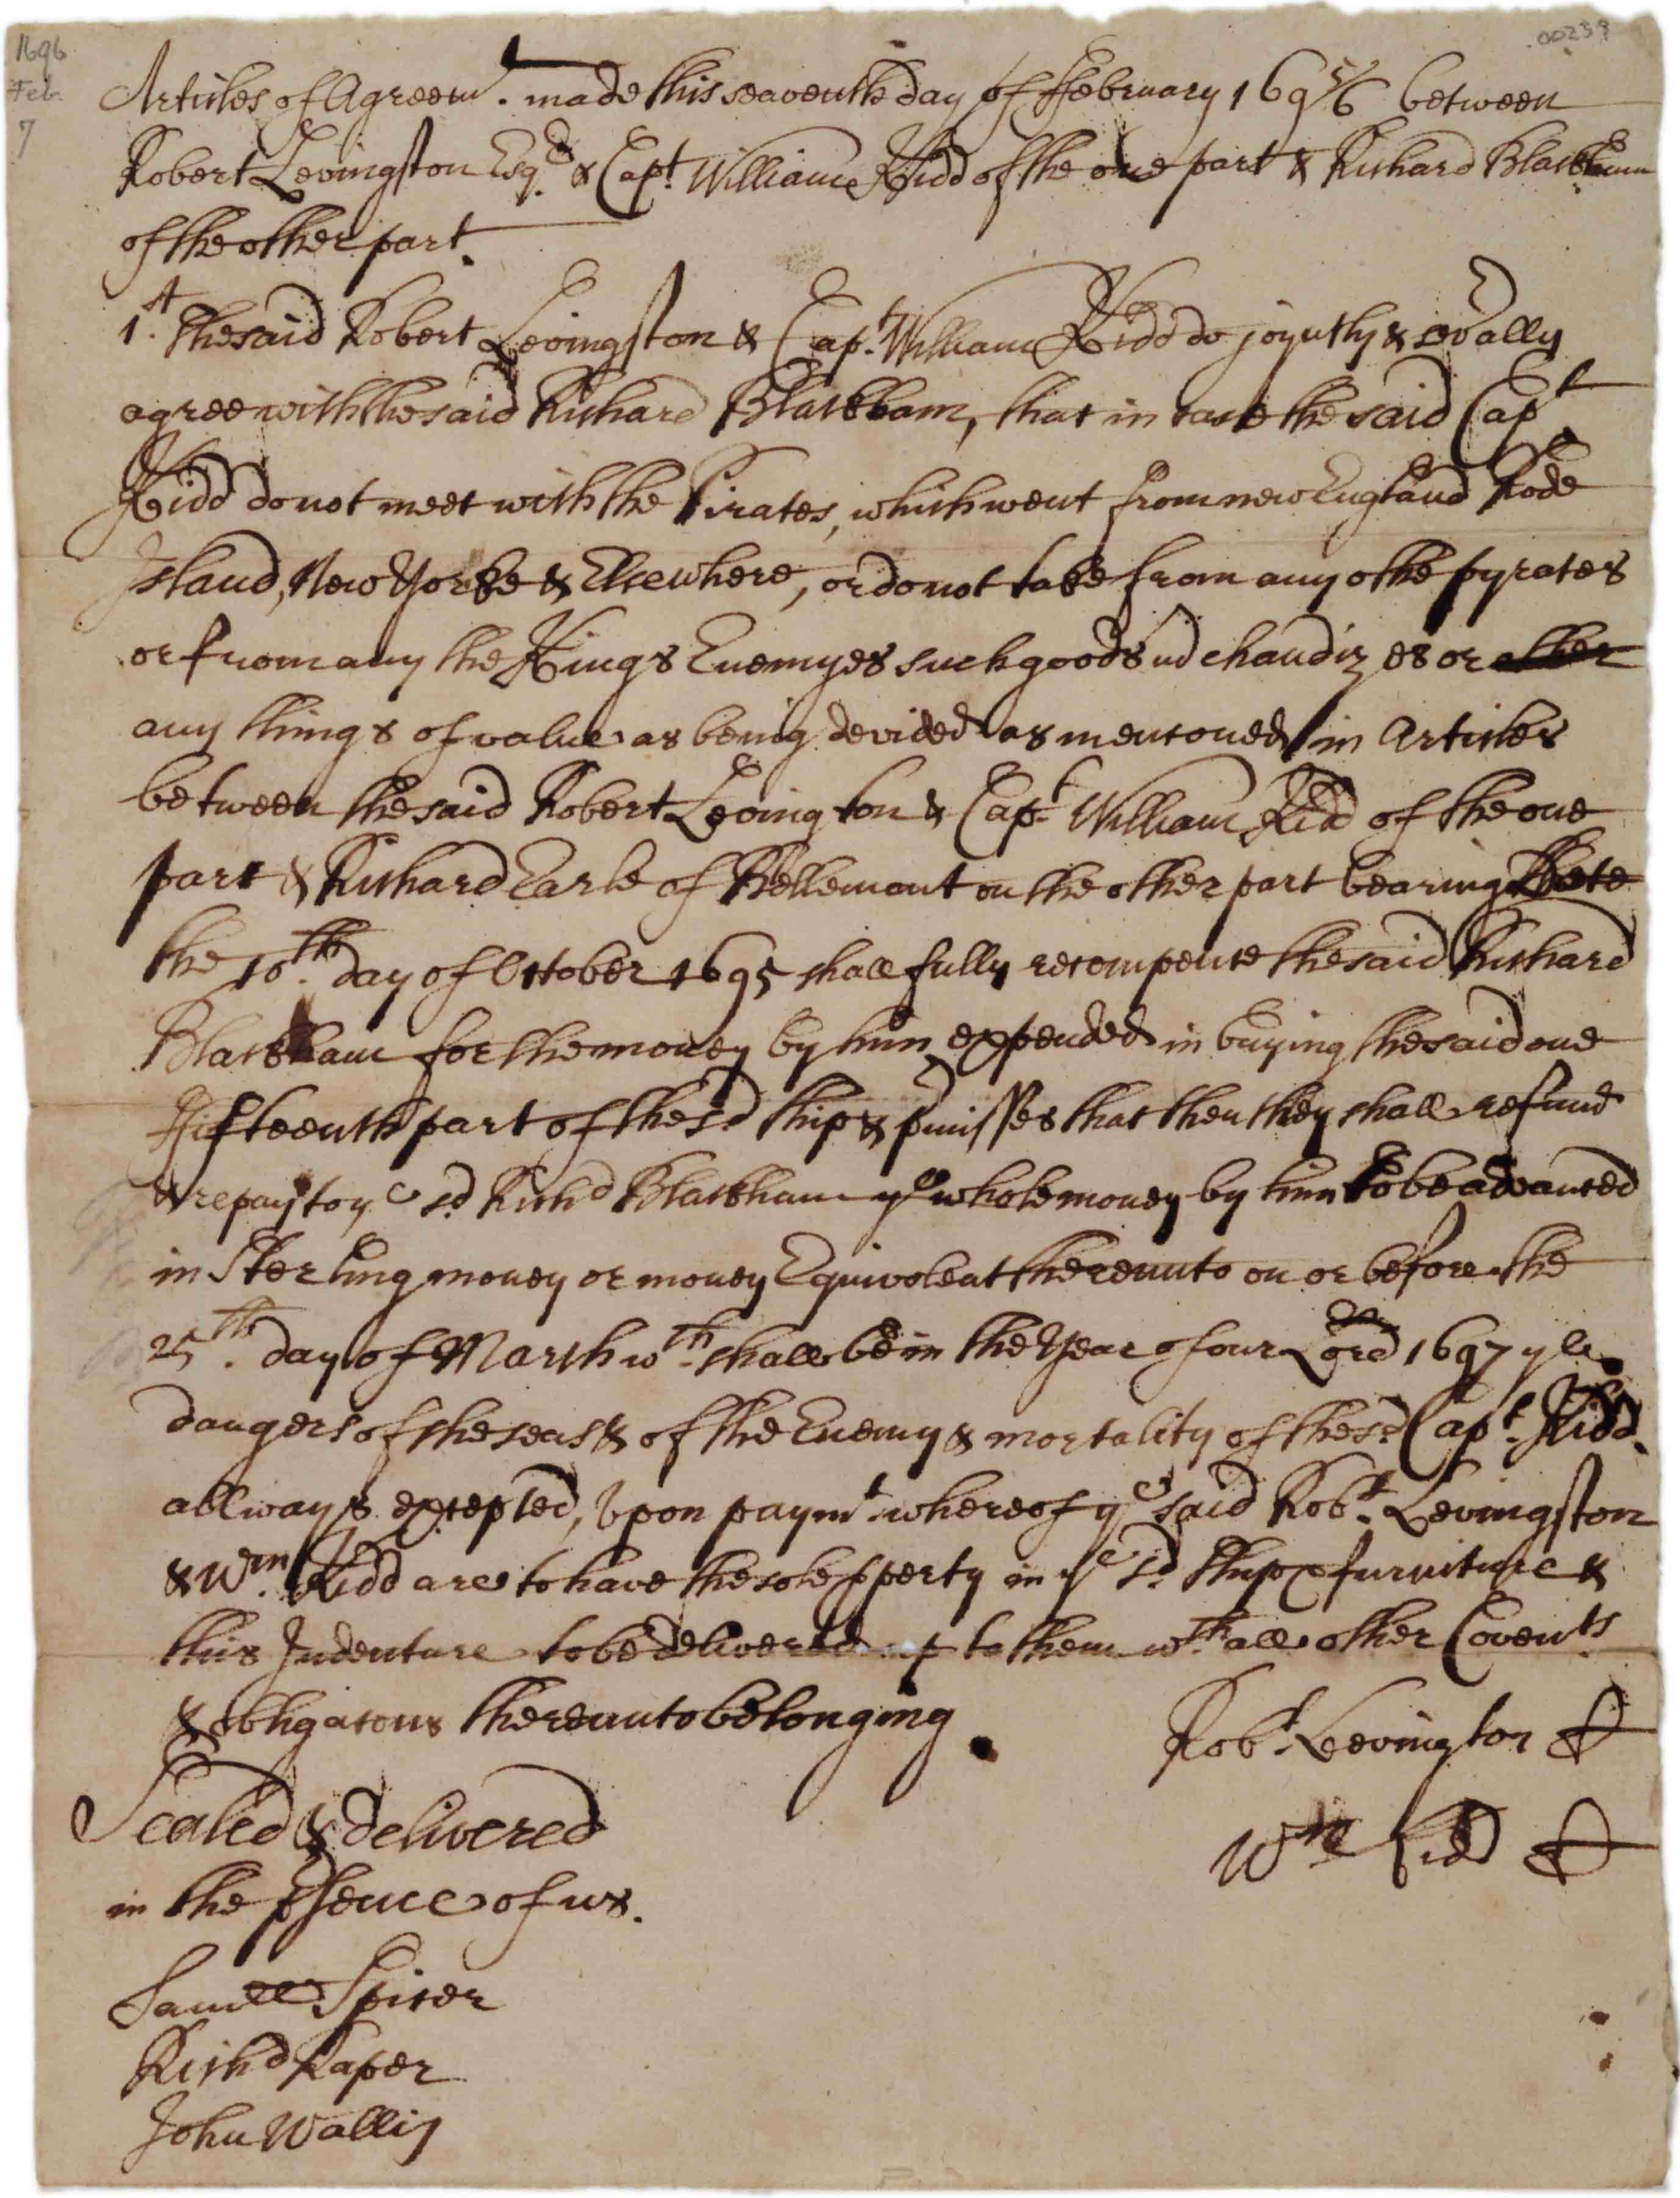 1696
Feb.
7
00239
Articles of Agreemt. made this seaventh day of ffebruary 169 5/6 between
Robert Levingston Esqr. & Capt. William Kidd of the one part & Richard Blackham
of the other part.
1st. The said Robert Levingston & Capt. William Kidd do joyntly & sevally
agree with the said Richard Blackham, that in case the said Capt.
Kidd do not meet with the Pirates, which went from new England Rode
Island, New Yorke & Elsewhere, or do not take from any othe pyrates
or from any the Kings Enemyes such goods chandizes or other
any things of value as being devided as menconed in Articles
between the said Robert Levington & Capt. William Kidd of the one
part & Richard Earle of Bellemont on the other part bearing Date
the 10th. day of October 1695 shall fully recompence the said Richard
Blackham for the money by him expended in buying the said one
Fifteenth part of the sd. ship & pmisses that then they shall refund
& repay to ye sd. Richd Blackham ye whole money by him to be advanced
in Sterling money or money Equivolent thereunto on or before the
25th. day of March wth. shall be in the Year of our Lord 1697 ye
dangers of the seas & of the Enemy & mortality of the sd. Capt. Kidd
allways excepted, Upon paymt. whereof ye said Robt. Levingston
& Wm. Kidd are to have the sole pperty in ye sd. ship & furniture &
this Indenture to be delivered up to them wth. all other Covents.
& obligacons thereunto belonging.
Robt. Levington
Sealed & delivered
Wm Kidd
in the psence of us.
Samll Spicer
Richd Raper
John Wallis